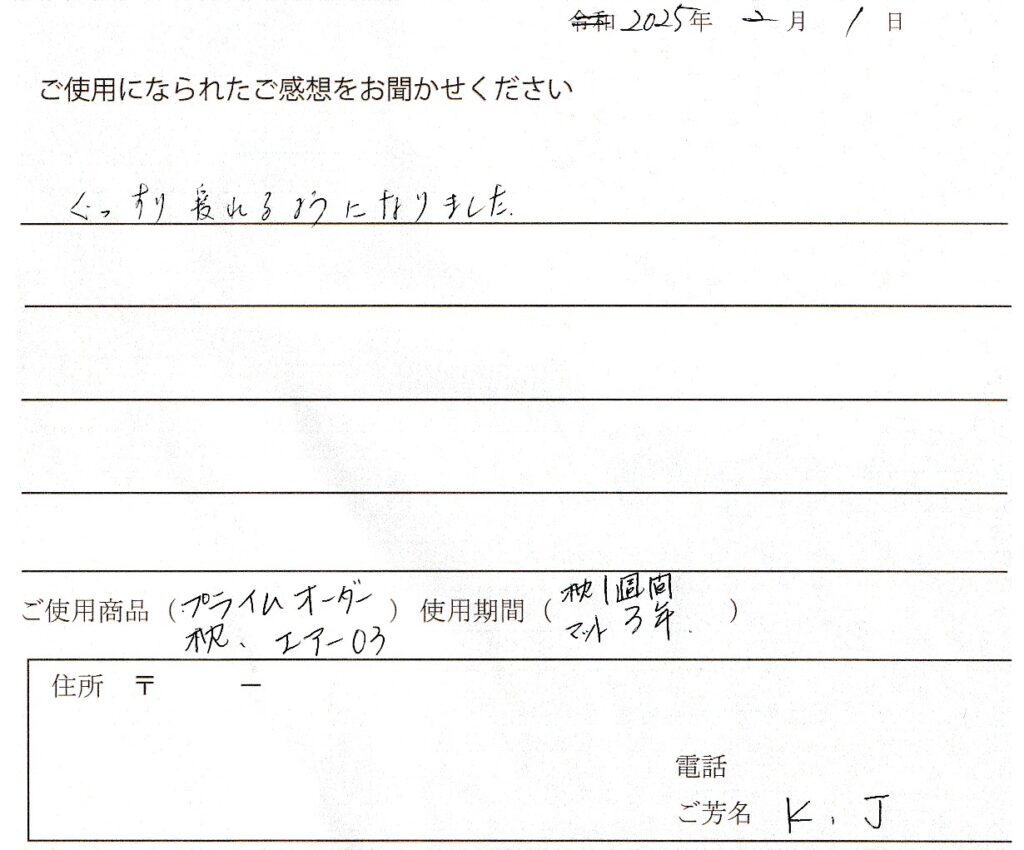 令和 2025年 2月 1日
ご使用になられたご感想をお聞かせください
ぐっすり寝れるようになりました.
ご使用商品（プライムオーダー枕、エアー03）使用期間（枕1週間 マット3年.）
住所 〒 －
電話
ご芳名 K.J